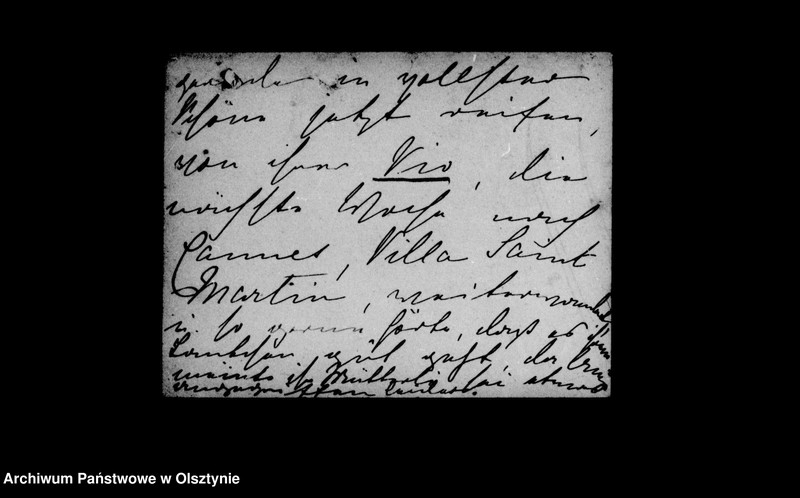 gerade in vollster
Schöne jetzt reifen,
von ihrer Vio, die
nächste Woche nach
Cannes, Villa Saint
Martin, weiterwandert
u. so gerne hörte, dass es ihrem
gut geht, der
meinte ihr sei etwas
Archiwum Państwowe w Olsztynie